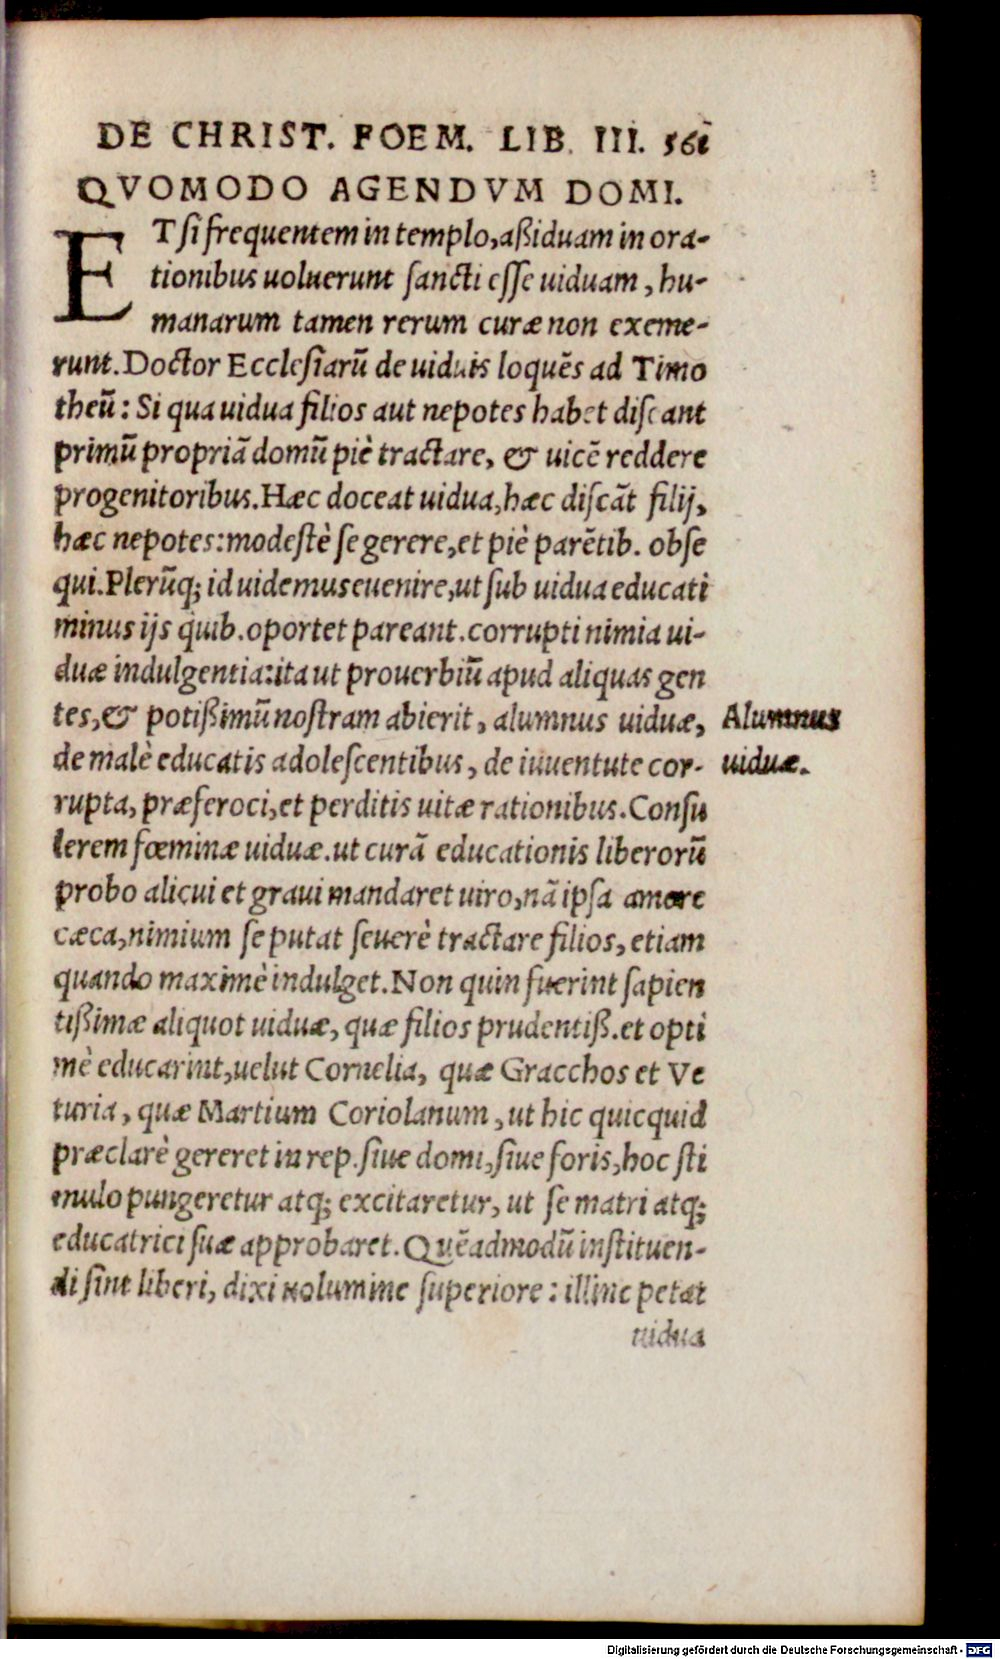 DE CHRIST. FOEM. LIB. III. 561
QVOMODO AGENDVM DOMI.
ET si frequentem in templo, aßiduam in ora-
tionibus uoluerunt sancti esse uiduam, hu-
manarum tamen rerum curæ non exeme-
runt. Doctor Ecclesiarū de uiduis loquēs ad Timo
theū: Si qua uidua filios aut nepotes habet discant
primū propriā domū piè tractare, & uicē reddere
progenitoribus. Hæc doceat uidua, hæc discāt filij,
hæc nepotes: modestè se gerere, et piè parētib. obse
qui. Plerūq; id uidemus euenire, ut sub uidua educati
minus ijs quib. oportet pareant. corrupti nimia ui-
duæ indulgentia: ita ut prouerbiū apud aliquas gen
tes, & potißimū nostram abierit, alumnus uiduæ,
de malè educatis adolescentibus, de iuuentute cor-
rupta, præferoci, et perditis uitæ rationibus. Consu
lerem fœminæ uiduæ. ut curā educationis liberorū
probo alicui et graui mandaret uiro, nā ipsa amore
cæca, nimium se putat seuerè tractare filios, etiam
quando maximè indulget. Non quin fuerint sapien
tißimæ aliquot uiduæ, quæ filios prudentiß. et opti
mè educarint, uelut Cornelia, quæ Gracchos et Ve
turia, quæ Martium Coriolanum, ut hic quicquid
præclarè gereret in rep. siue domi, siue foris, hoc sti
mulo pungeretur atq; excitaretur, ut se matri atq;
educatrici suæ approbaret. Quēadmodū instituen-
di sint liberi, dixi uolumine superiore: illinc petat
uidua
Alumnus
uiduæ.
Digitalisierung gefördert durch die Deutsche Forschungsgemeinschaft - DFG